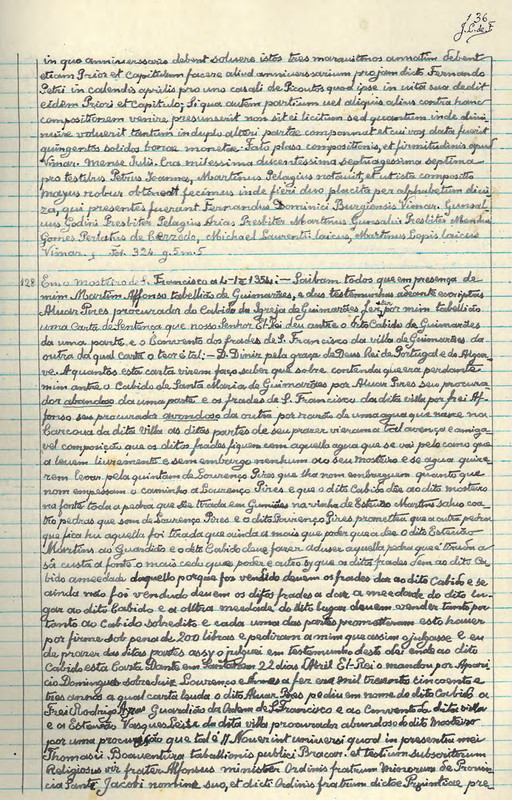 136
J. L. de F.
in quo anniversario debent soluere istos tres marauitinos annatim debent
etiam Prior et capitulum facere aliud anniversarium pro jam dicto Fernando
Petri in calendis aprilis pro uno casali de Proutos quod ipse in uita sua dedit
eidem Priori et Capitulo; Si qua autem partium uel aliquis alius contra hanc
compositionem venire presumserit non sit ei licitum sed quantum inde dimi
nuire voluerit tantum in duplo alteri parte componnat et cui vox data fuerit
quingentos solidos borac monetae. Fata plass compositionis, et firmitudinis apud
Vimar. Mense Julii. Era milessima ducentessima septuagessima septima
pro testibus Petrus Joannes, Martinus Pelagius notauit, et ut ista compositio
mayus robur obtineat fecimus inde fieri duo placita per alphabetum divi
za, qui presentes fuerunt Fernandus Dominici Burgiensis Vimar. Gunsal
uus Godini Presbiter Pelagius Arias Presbiter Martinus Gunsaluis Presbiter Menendus
Gomes Portarius de Cerzedo, Michael Laurentii laicus, Martinus Lopis laicus
Vimar., Fol. 324 g. 5 m. 5
128 Em o mosteiro de S. Francisco a 4-I-1354: — Saibam todos que em presença de
mim Martim Affonso tabellião de Guimarães, e dos testemunhas adeante escriptas
Aluar Pires procurador do Cabido da Igreja de Guimarães, fez ler por mim tabellião
uma Carta de Sentença que nosso Senhor El-Rei deu antre o dito Cabido de Guimarães
da uma parte, e o Convento dos frades de S. Francisco da villa de Guimarães da
outra da qual carta o teor é tal: — D. Diniz pela graça de Deus Rei de Portugal e do Algar-
ve. A quantos esta carta virem faço saber que sobre contenda que era perdante
mim antre o Cabido de Santa Maria de Guimarães por Aluar Pires seu procura
dor abandoso da uma parte e os frades de S. Francisco da dita villa por frei Af-
fonso seu procurador avondoso da outra por razão de uma agua que nasce na
Carcoua da dita Villa as ditas partes de seu prazer vieram a tal avença e amiga
vel composição que os ditos frades fiquem com aquella agua que se vai pelo cano que
a levem livremente e sem embargo nenhum ao seu Mosteiro e se agua quize-
rem levar pela quintam de Lourenço Pires que lha nom embarguem quanto que
nom empessam o caminho a Lourenço Pires e que o dito Cabido dee ao dito mosteiro
na fonte toda a pedra que lhe tirada em Gumiães na vinha de Estevão Martins salvo coa-
tro pedras que som de Lourenço Pires e o dito Lourenço Pires prometteu que a outra pedra
que fica hu aquella foi tirada que ainda a mais que poder que a dee o dito Estevão
Martins ao Guardião e o dito Cabido deve fazer aduser aquella pedra que é tirada a
sâ custa á fonte o mais cedo que poder e outro sy que os ditos frades dem ao dito Ca-
bido a meedade daquello porque foi vendido devem os frades dar ao dito Cabido e se
ainda não foi vendudo devem os ditos frades a dar a meedade do dito lu-
gar ao dito Cabido e a outra meedade do dito lugar devem vender tanto por
tanto ao Cabido sobredito e cada uma das partes prometteram esto haver
por firme sob pena de 200 libras e pediram a mim que assim o julgasse e eu
de prazer das ditas partes assy o julguei em testemunho desto dei ende ao dito
Cabido esta Carta Dante em Santarem 22 dias d'Abril El-Rei o mandou por Apari
cio Domingues sobrejuiz Lourenço Esteves a fez era mil trezentos cincoenta e
tres annos a qual carta leuda o dito Aluar Pires pediu em nome do dito Cabido a
Frei Rodrigo Guardião da Ordem de S. Francisco e ao Convento da dita villa
e os Estevão Vasques Leite da dita villa procurador abundoso do dito Mosteiro
por uma procuração que tal é // Nouerint universi quod in presentia mei
Thomasii Boaventura taballionis publici Bracar. et testium subscritorum
Religiosus vir frater Alfonsus minister Ordinis fratrum Minorum de Provin
cia Sancti Jacobi nomine suo, et dicti Ordinis fratrum dictae Provintiae pre-